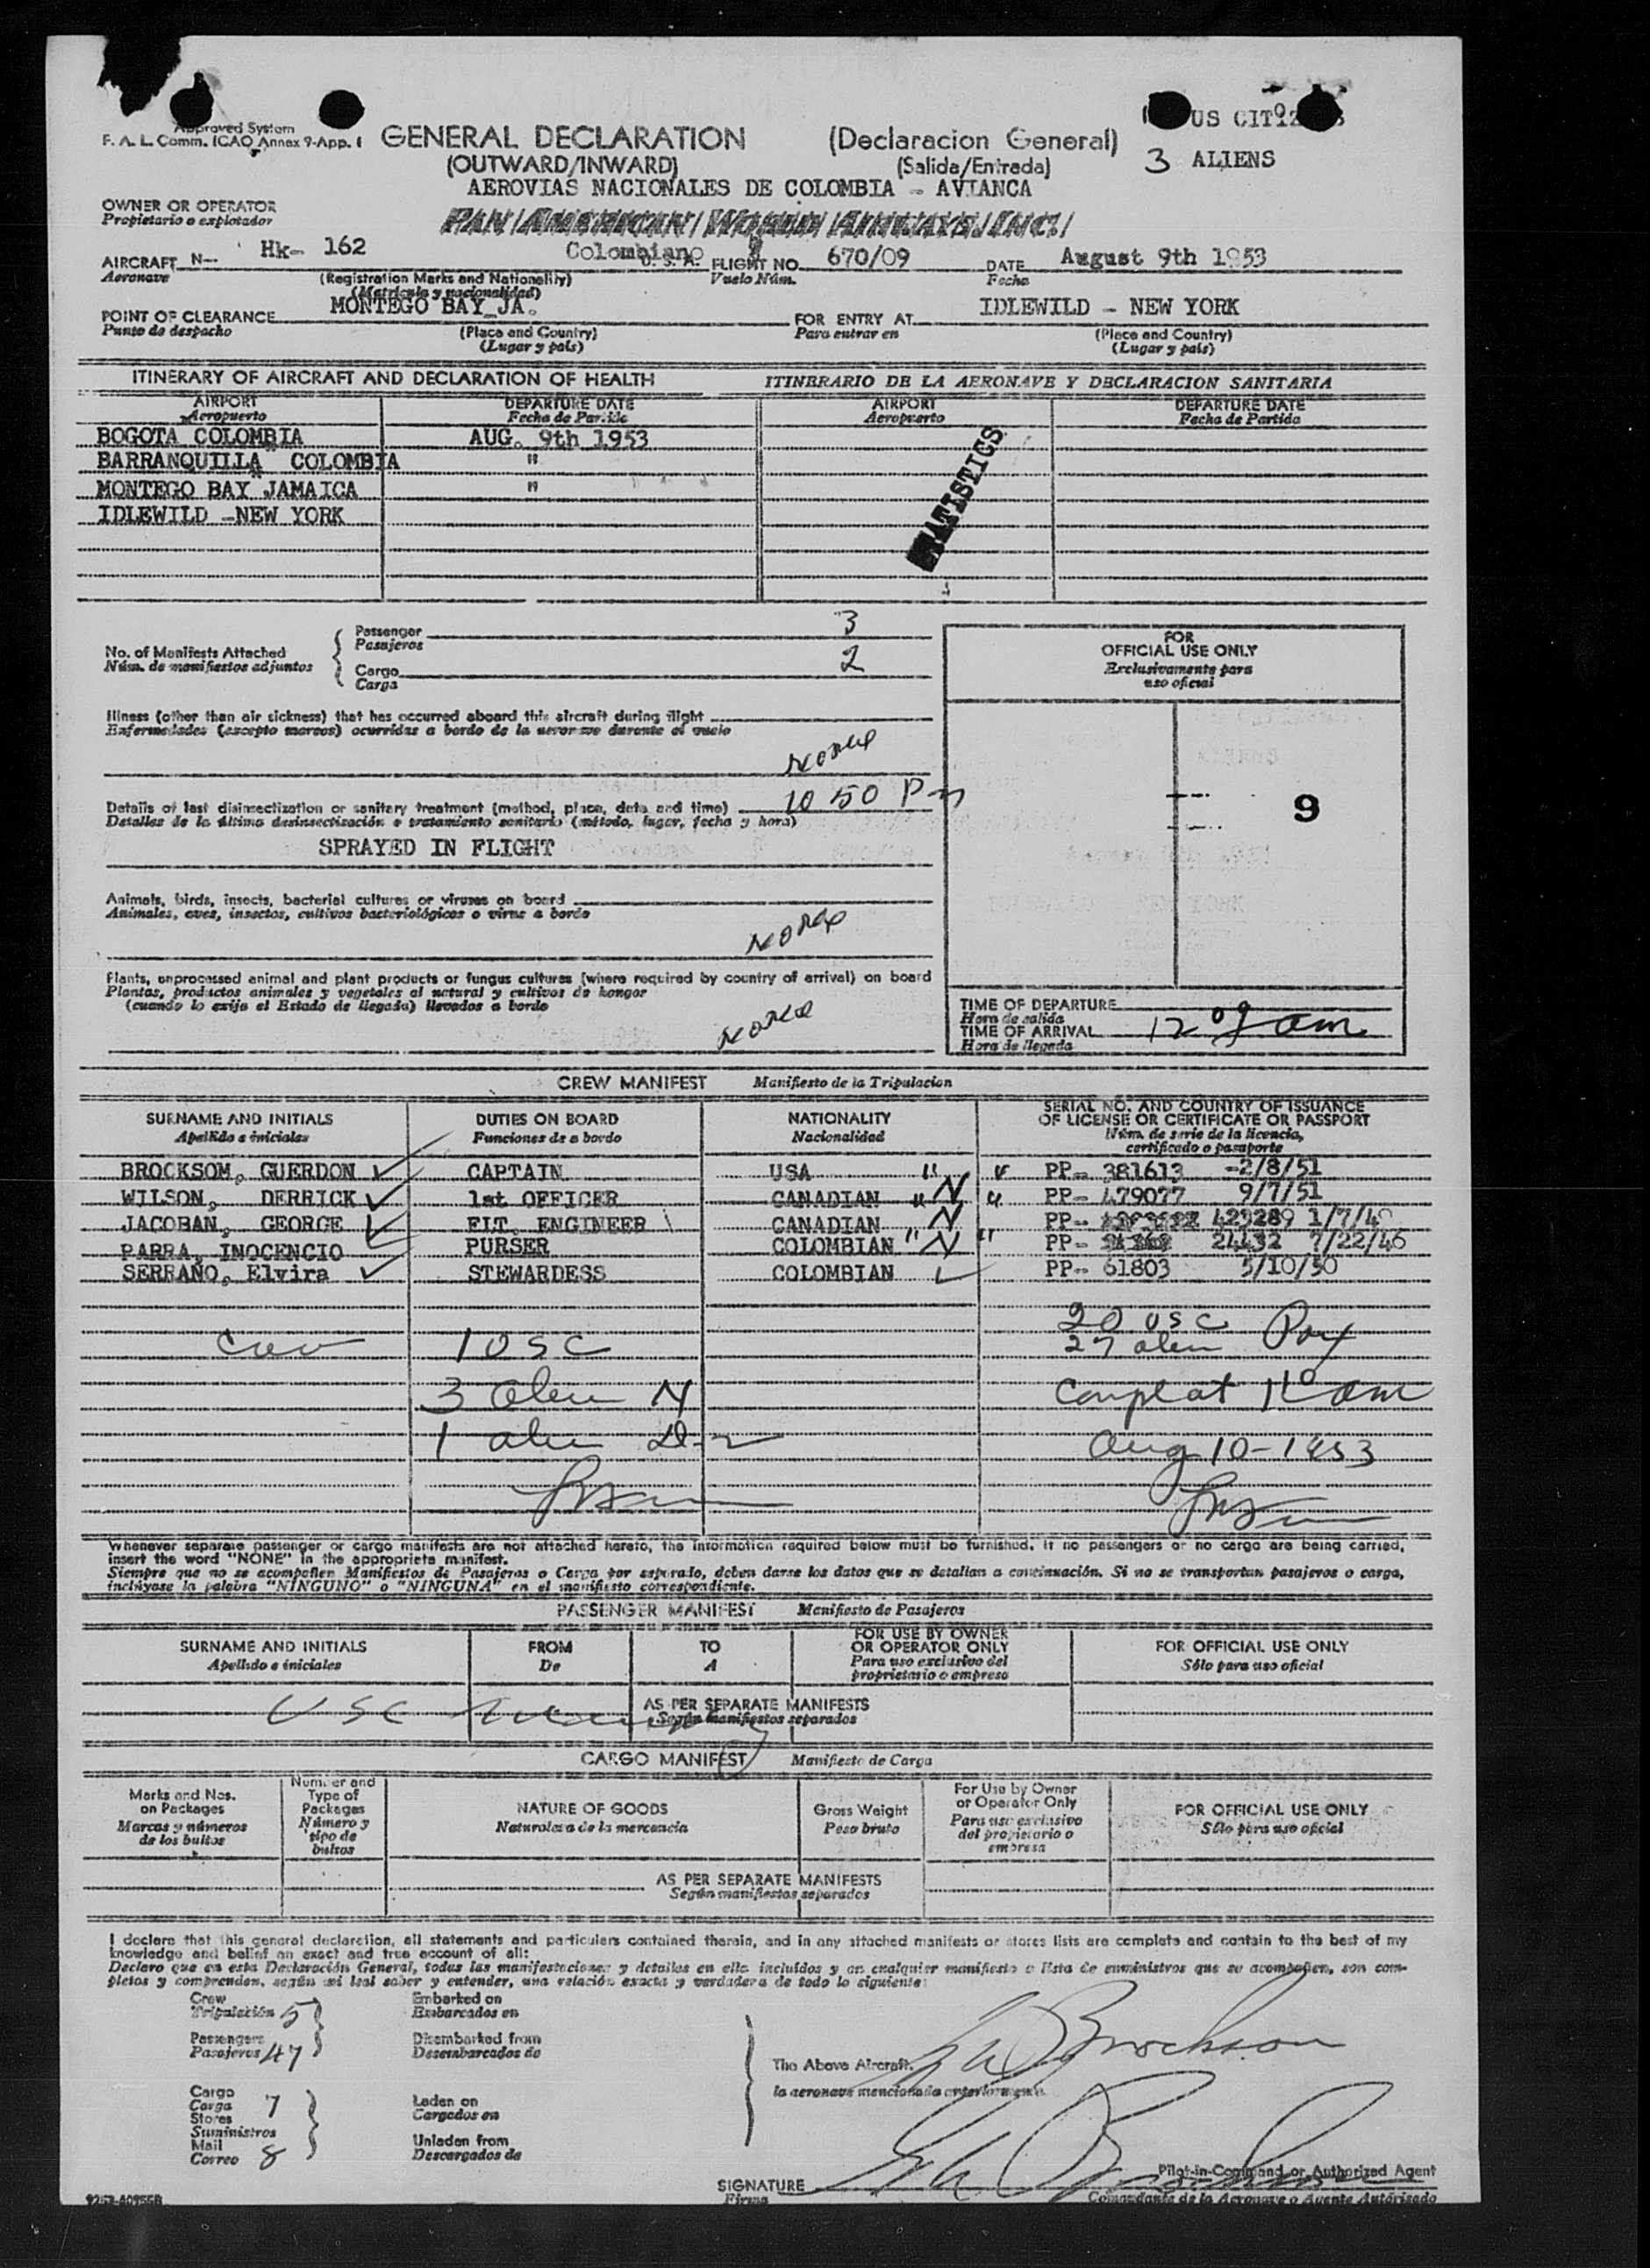 US CIT
3 ALIENS
Approved System
F. A. L. Comm. ICAO Annex 9-App. 1
GENERAL DECLARATION (Declaracion General)
(OUTWARD/INWARD) (Salida/Entrada)
AEROVIAS NACIONALES DE COLOMBIA - AVIANCA
OWNER OR OPERATOR PAN AMERICAN WORLD AIRWAYS, INC.
Propietario o explotador
AIRCRAFT N- Hk- 162 Colombiano U. S. A. FLIGHT NO. 670/09 DATE August 9th 1953
Aeronave (Registration Marks and Nationality) Vuelo Núm. Fecha
(Matricula y nacionalidad)
POINT OF CLEARANCE MONTEGO BAY JA. FOR ENTRY AT IDLEWILD - NEW YORK
Punto de despacho (Place and Country) Para entrar en (Place and Country)
(Lugar y país) (Lugar y país)
ITINERARY OF AIRCRAFT AND DECLARATION OF HEALTH ITINERARIO DE LA AERONAVE Y DECLARACION SANITARIA
AIRPORT DEPARTURE DATE AIRPORT DEPARTURE DATE
Aeropuerto Fecha de Partida Aeropuerto Fecha de Partida
BOGOTA COLOMBIA AUG. 9th 1953
BARRANQUILLA COLOMBIA "
MONTEGO BAY JAMAICA "
IDLEWILD -NEW YORK
ATISTICS
No. of Manifests Attached
Núm. de manifiestos adjuntos
Passenger 3
Pasajeros
Cargo 2
Carga
FOR
OFFICIAL USE ONLY
Exclusivamente para
uso oficial
Illness (other than air sickness) that has occurred aboard this aircraft during flight
Enfermedades (excepto mareos) ocurridas a bordo de la aeronave durante el vuelo
None
Details of last disinsectization or sanitary treatment (method, place, date and time) 10 50 Pm
Detalles de la última desinsectización o tratamiento sanitario (método, lugar, fecha y hora)
SPRAYED IN FLIGHT
9
Animals, birds, insects, bacterial cultures or viruses on board
Animales, aves, insectos, cultivos bacteriológicos o virus a bordo
None
Plants, unprocessed animal and plant products or fungus cultures (where required by country of arrival) on board
Plantas, productos animales y vegetales al natural y cultivos de hongor
(cuando lo exija el Estado de llegada) llevados a bordo
None
TIME OF DEPARTURE
Hora de salida
TIME OF ARRIVAL 12 09 am
Hora de llegada
CREW MANIFEST Manifiesto de la Tripulacion
SURNAME AND INITIALS DUTIES ON BOARD NATIONALITY SERIAL NO. AND COUNTRY OF ISSUANCE
OF LICENSE OR CERTIFICATE OR PASSPORT
Apellido e iniciales Funciones de a bordo Nacionalidad Núm. de serie de la licencia,
certificado o pasaporte
BROCKSOM, GUERDON CAPTAIN USA " " PP- 381613 -2/8/51
WILSON, DERRICK 1st OFFICER CANADIAN " N " PP- 479077 9/7/51
JACOBAN, GEORGE FLT. ENGINEER CANADIAN " N PP- 429289 1/7/49
PARRA, INOCENCIO PURSER COLOMBIAN " N " PP- 24432 7/22/46
SERRAÑO, Elvira STEWARDESS COLOMBIAN PP- 61803 5/10/50
20 USC
Crew 1 USC 27 alien Pax
3 alien N Complat 1 10 am
1 alien D-2 Aug 10-1953
Whenever separate passenger or cargo manifests are not attached hereto, the information required below must be furnished. If no passengers or no cargo are being carried,
insert the word "NONE" in the appropriate manifest.
Siempre que no se acompañen Manifiestos de Pasajeros o Carga por separado, deben darse los datos que se detallan a continuación. Si no se transportan pasajeros o carga,
inclúyase la palabra "NINGUNO" o "NINGUNA" en el manifiesto correspondiente.
PASSENGER MANIFEST Manifiesto de Pasajeros
SURNAME AND INITIALS FROM TO FOR USE BY OWNER
OR OPERATOR ONLY FOR OFFICIAL USE ONLY
Apellido e iniciales De A Para uso exclusivo del
propietario o empresa Sólo para uso oficial
USC
AS PER SEPARATE MANIFESTS
Según manifiestos separados
CARGO MANIFEST Manifiesto de Carga
Marks and Nos.
on Packages
Marcas y números
de los bultos
Number and
Type of
Packages
Número y
tipo de
bultos
NATURE OF GOODS
Naturaleza de la mercancía
Gross Weight
Peso bruto
For Use by Owner
or Operator Only
Para uso exclusivo
del propietario o
empresa
FOR OFFICIAL USE ONLY
Sólo para uso oficial
AS PER SEPARATE MANIFESTS
Según manifiestos separados
I declare that this general declaration, all statements and particulars contained therein, and in any attached manifests or stores lists are complete and contain to the best of my
knowledge and belief an exact and true account of all:
Declaro que en esta Declaración General, todas las manifestaciones y detalles en ella incluídos y en cualquier manifiesto o lista de suministros que se acompañen, son com-
pletos y comprenden, según mi leal saber y entender, una relación exacta y verdadera de todo lo siguiente:
Crew Embarked on
Tripulación 5 Embarcados en
Passengers Disembarked from
Pasajeros 47 Desembarcados de
The Above Aircraft.
la aeronave mencionada anteriormente
Cargo Laden on
Carga 7 Cargados en
Stores
Suministros Unladen from
Mail Descargados de
Correo 8
Brockson
SIGNATURE
Firma
Pilot-in-Command or Authorized Agent
Comandante de la Aeronave o Agente Autórisado